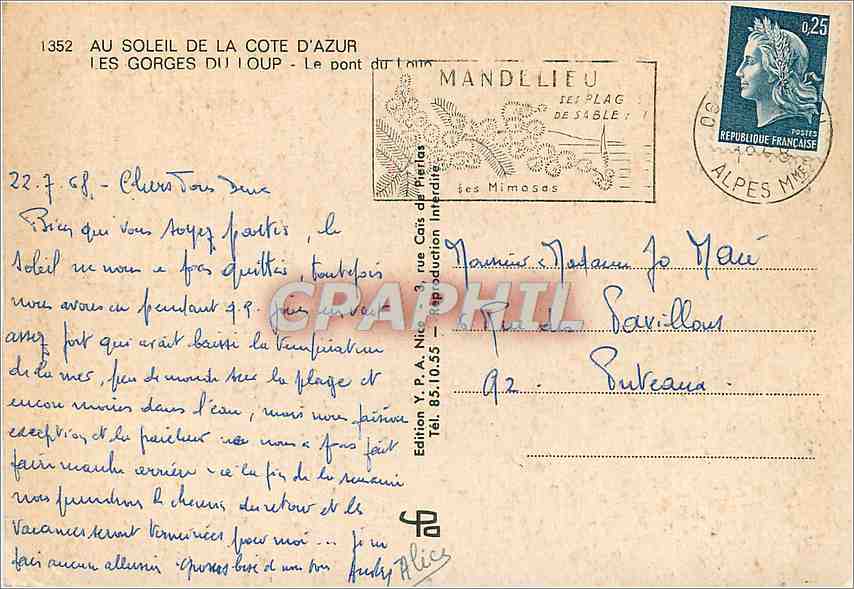 1352 AU SOLEIL DE LA COTE D'AZUR
LES GORGES DU LOUP - Le pont du Loup
MANDELIEU
SES PLAG
DE SABLE
ses Mimosas
0,25
POSTES
REPUBLIQUE FRANÇAISE
ALPES Mmes
22.7.68. - Chers Tous Deux
Bien que vous soyez partis, le
soleil ne nous a pas quittés, toutefois
nous avons eu pendant q.q. jours un vent
assez fort qui avait baissé la température
de la mer, peu de monde sur la plage et
encore moins dans l'eau, mais nous faisions
exception et la fraicheur ne nous a pas fait
faire marche arrière - à la fin de la semaine
nous prendrons le chemin du retour et les
vacances seront terminées pour moi... je n
fais aucun allusion bise à nous tous
Alice
Monsieur & Madame Jo
6 Rue des Pavillons
92. Puteaux.
Edition Y. P. A. Nice - 3, rue Caïs de Pierlas
Tél. 85.10.55 - Reproduction Interdite
CPAPHIL